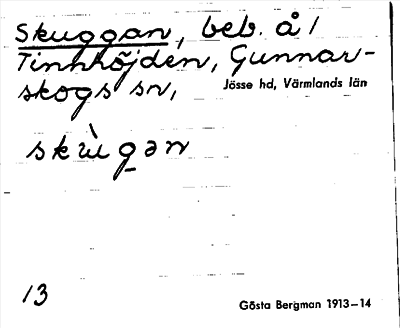 Skuggan, beb. å /
Tinnhöjden, Gunnar-
skogs sn, Jösse hd, Värmlands län
skùgən
13 Gösta Bergman 1913-14